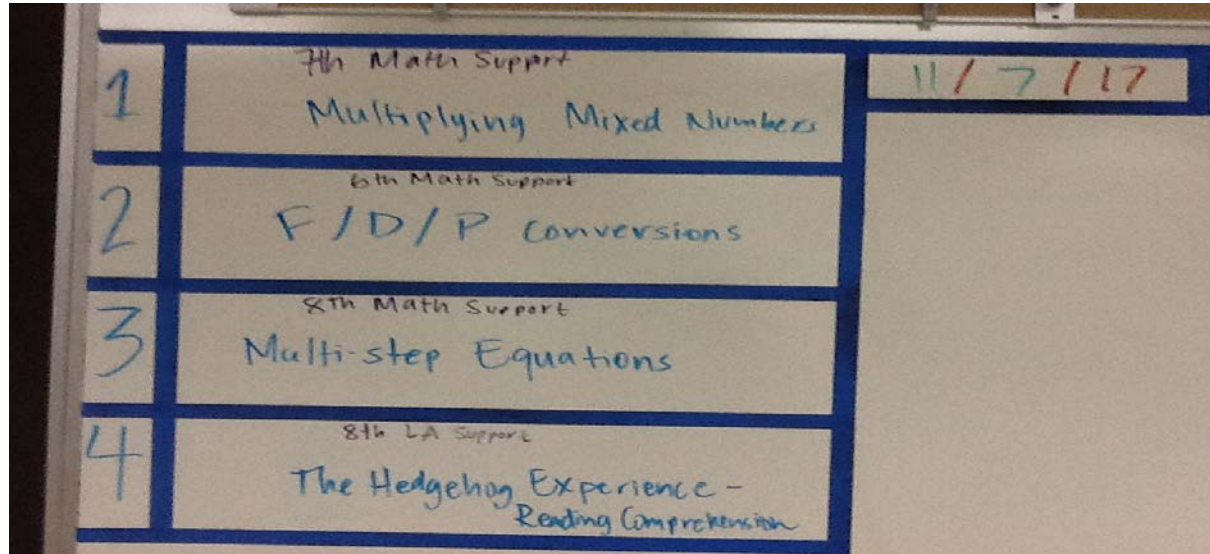 1
7th Math Support
Multiplying Mixed Numbers
11/7/17
2
6th Math Support
F/D/P conversions
3
8th Math Support
Multi-step Equations
4
8th LA Support
The Hedgehog Experience -
Reading Comprehension